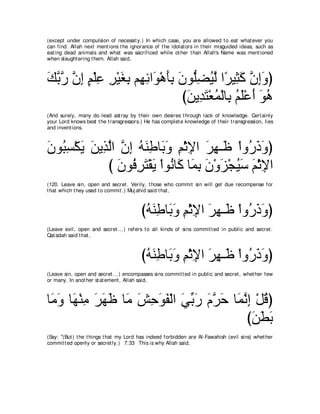 (except under compulsion of necessity.) In which case, you are allowed to eat whatever you
can find. Allah next mentions the ignorance of the idolators in their misguided ideas, such as
eating dead animals and what was sacrificed while other than Allah's Name was mentioned
when slaughtering them. Allah said,
(وَإِنَّ كَثِيرًا لَّيُضِلُّونَ بِأَهْوَائِهِم بِغَيْرِ عِلْمٍ إِنَّ رَبَّكَ
هُوَ أَعْلَمُ بِالْمُعْتَدِينَ)
(And surely, many do lead astray by their own desires through lack of knowledge. Certainly
your Lord knows best the transgressors.) He has complete knowledge of their transgression, lies
and inventions.
(وَذَرُواْ ظَـهِرَ الإِثْمِ وَبَاطِنَهُ إِنَّ الَّذِينَ يَكْسِبُونَ
الإِثْمَ سَيُجْزَوْنَ بِمَا كَانُواْ يَقْتَرِفُونَ )
(120. Leave sin, open and secret. Verily, those who commit sin will get due recompense for
that which they used to commit.) Mujahid said that,
(وَذَرُواْ ظَـهِرَ الإِثْمِ وَبَاطِنَهُ)
(Leave evil, open and secret...) refers to all kinds of sins committed in public and secret.
Qatadah said that,
(وَذَرُواْ ظَـهِرَ الإِثْمِ وَبَاطِنَهُ)
(Leave sin, open and secret...) encompasses sins committed in public and secret, whether few
or many. In another statement, Allah said,
(قُلْ إِنَّمَا حَرَّمَ رَبِّيَ الْفَوَحِشَ مَا ظَهَرَ مِنْهَا وَمَا
بَطَنَ)
(Say: "(But) the things that my Lord has indeed forbidden are Al-Fawahish (evil sins) whether
committed openly or secretly.) 7:33 This is why Allah said,